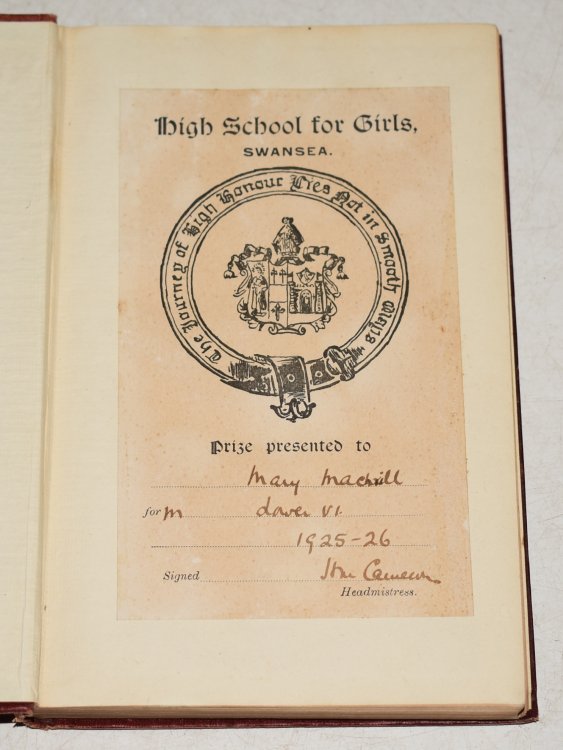 High School for Girls,
SWANSEA.
The Journey of High Honour Lies Not in Smooth Ways
Prize presented to
Mary
for m Lower VI.
1925-26
Signed Cameron
Headmistress.